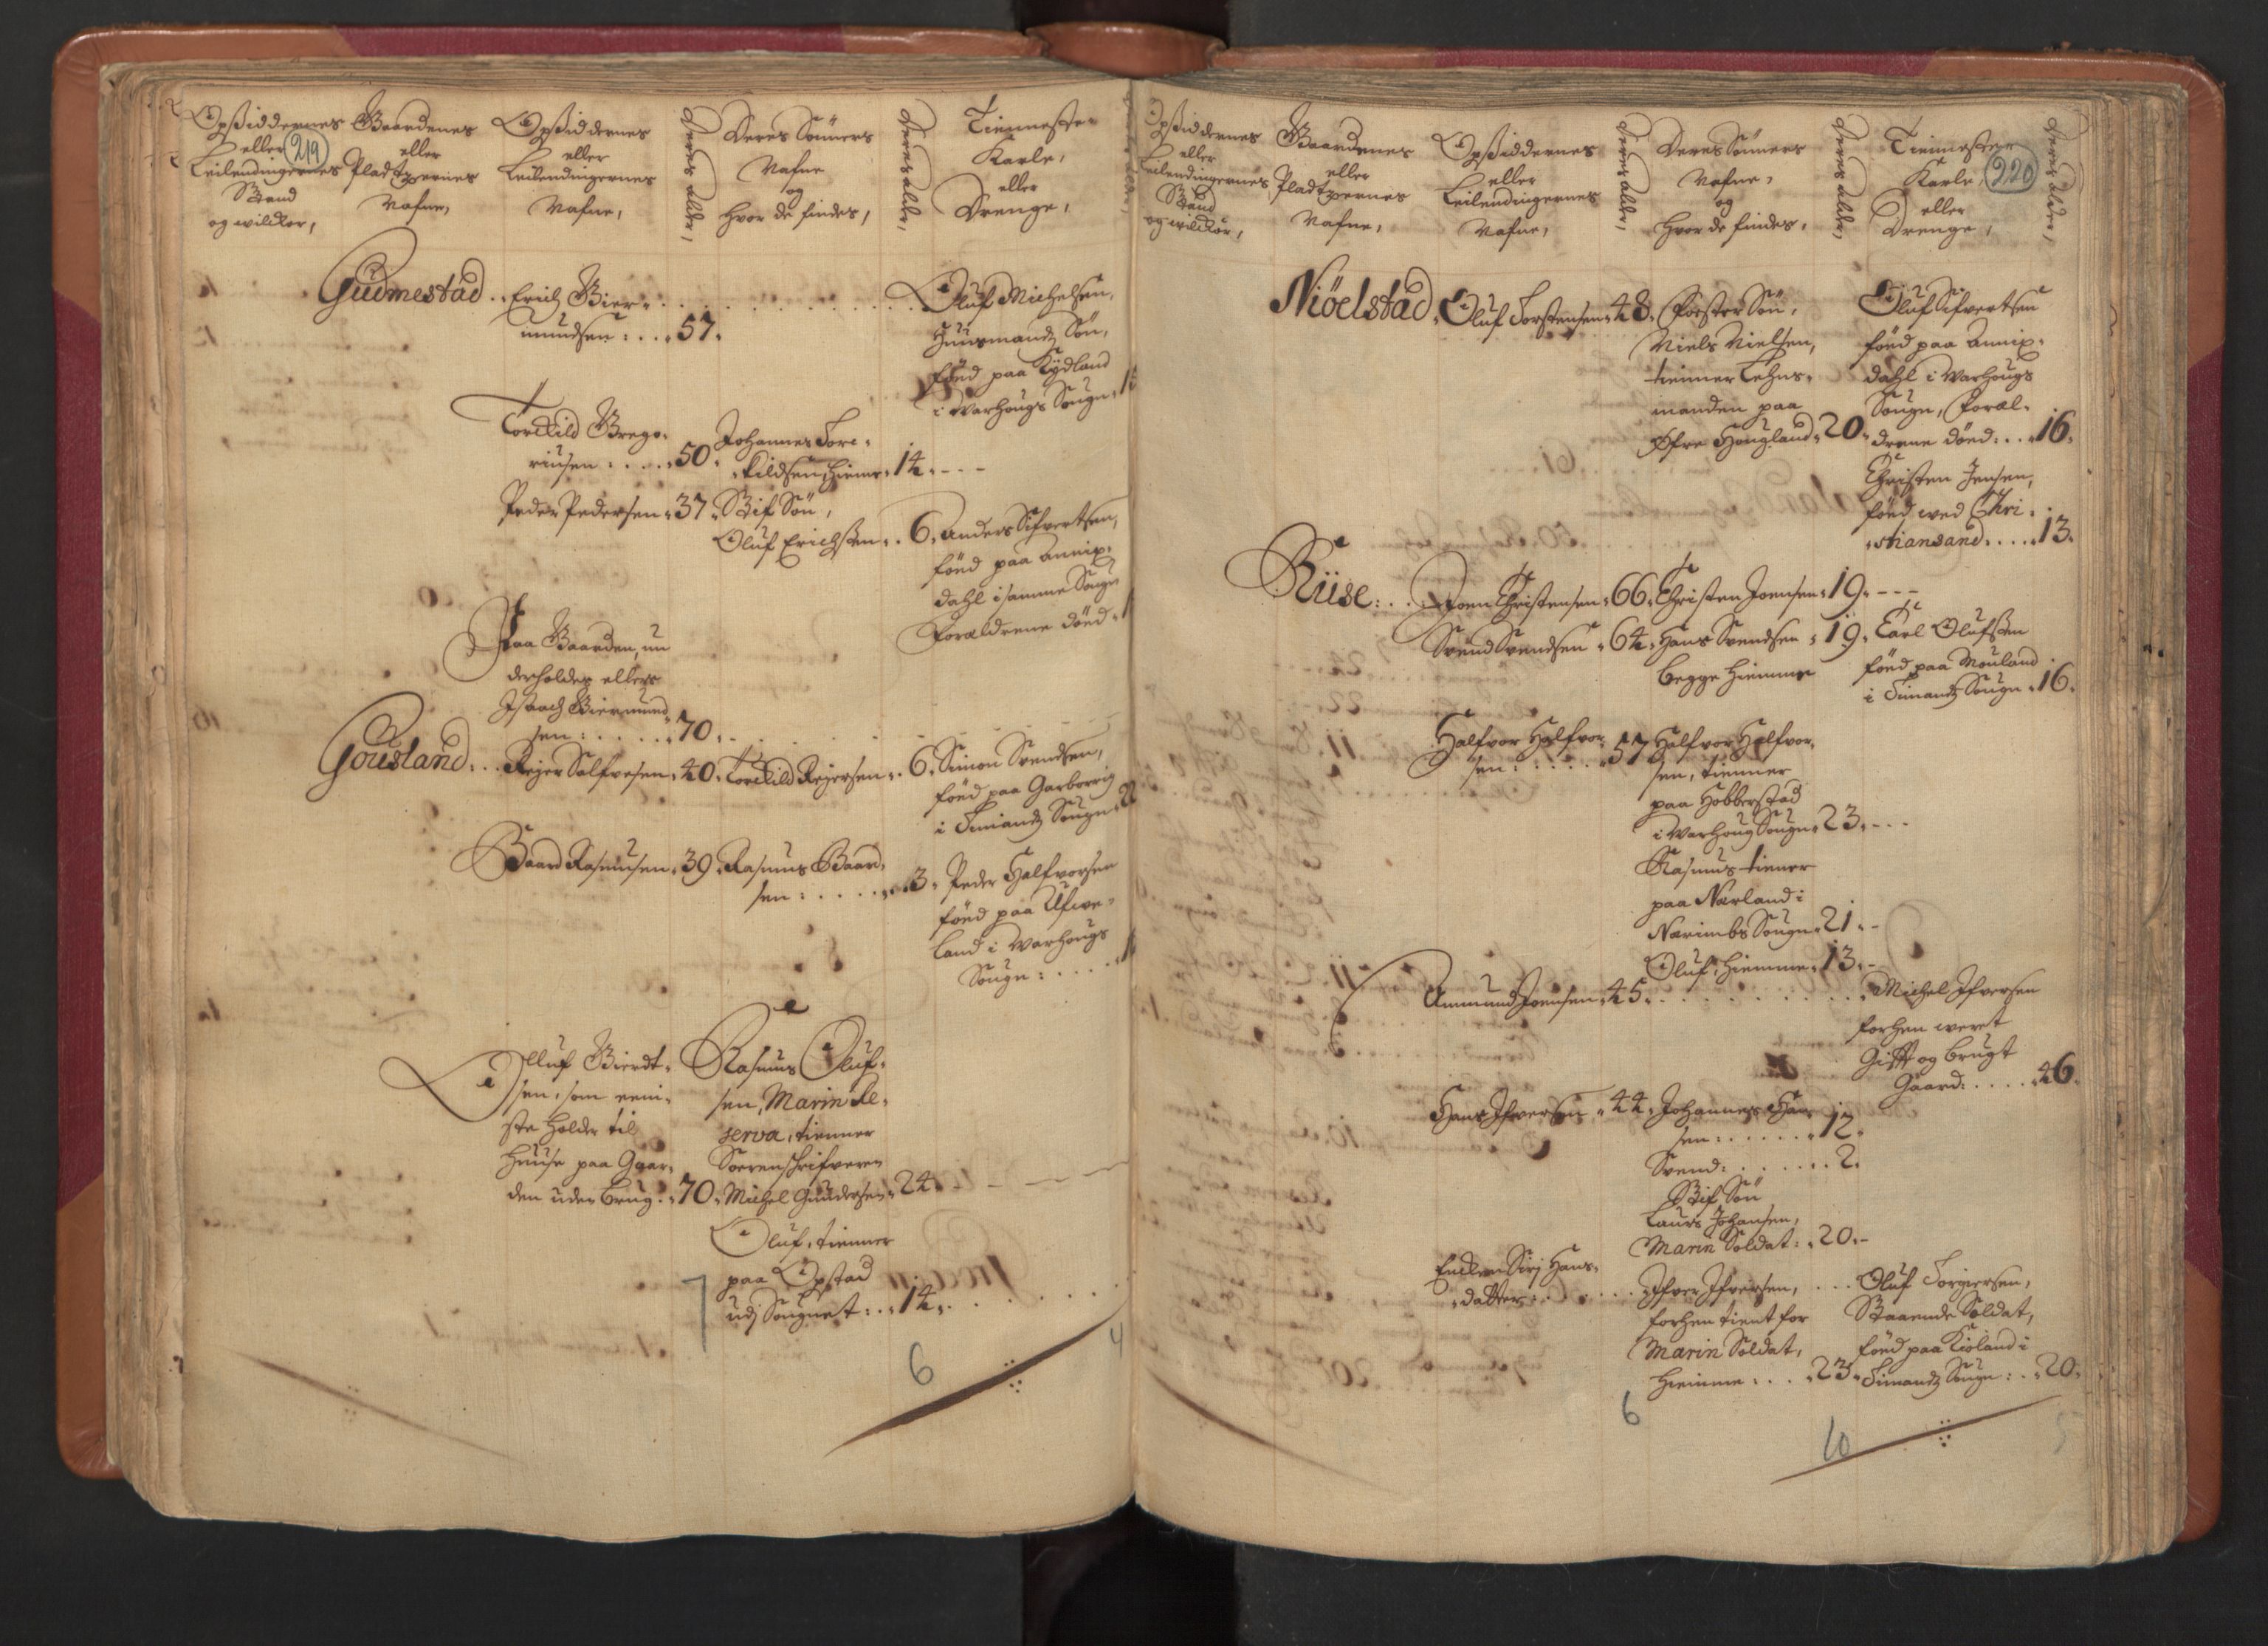 Opsiddernes
eller
Leilendingernes
Stand
og wilckor,
219
Gaardenes
eller
Pladtzernes
Nafne,
Opsiddernes
eller
Leilendingernes
Nafne,
Deres alder,
Deres Sönners
Nafne
og
Hvor de findes,
Deres alder,
Tienneste-
Karle,
eller
Drenge,
Gudmestad..
Erich Bier-
mundsen:...57.
Oluf Michelsen,
Huusmandz Sön,
föed paa Kydland
i Warhougs Sougn.
Torckild Grego-
riusen:....50.
Johannes Torc-
kildsen, hiemme 14.---
Peder Pedersen.37.
Stif Sön,
Oluf Erichsen..6.
Anders Sifvertsen,
föed paa Annix-
dahl i samme Sougn
Forældrene döed.
Paa Gaarden, un
derholdes ellers
Isaach Biermund
sen:.....70.
Gousland...
Reyer Salfvesen.40.
Torckild Reyersen..6.
Simon Svendsen,
föed paa Garborrig
i Timandz Sougn.
Baard Rasmusen.39.
Rasmus Baard-
sen:......3.
Peder Halfvorsen
föed paa Ufwe-
land i Warhougs
Sougn:....
Olluf Bierdt-
sen, som eeni-
ste holder til
Huuse paa Gaar-
den uden brug..70.
Rasmus Oluf-
sen, Marin Re-
serva, tienner
Sorenschrifveren
Michel Gundersen.24.
Oluf, tienner
paa Opstad
udj Sougnet:..14.
7
6
4
Opsiddernes
eller
Leilendingernes
Stand
og wilckor,
Gaardenes
eller
Pladtzernes
Nafne,
Opsiddernes
eller
Leilendingernes
Nafne,
Deres alder,
Deres Sönners
Nafne,
og
Hvor de findes,
Deres alder,
Tiennester
Karle,
eller
Drenge,
220
Deres alder,
Niöelstad.
Oluf Torstensen.48.
Foster Sön,
Niels Nielsen,
tienner Lehns-
manden paa
Öfre Hougland.20.
Oluf Sifvertsen
föed paa Annix-
dahl i Warhougs
Sougn, Foræl-
drene döed:...16.
Christen Jensen,
föed wed Chri-
stiansand....13.
Riise:..
Joen Christensen.66.
Christen Joensen.19.---
Svend Svendsen.64.
Hans Svendsen.19.
begge hiemme
Carl Olufsen
föed paa Mouland
i Timandz Sougn.16.
Halfvor Halfvor-
sen:.....57
Halfvor Halfvor-
sen, tienner
paa Hobberstad
i Warhoug Sougn.23.---
Rasmus tiener
paa Nærland i
Nærimbs Sougn.21.-
Oluf, hiemme.13.-
Ammund Joensen.45.
Michel Ifversen
forhen weret
Gift og brugt
Gaard:....46.
Hans Ifversen.44.
Johannes Han-
sen:.....12.
Svend:......2.
Stif Sön
Laurs Johansen,
Marin Soldat:.20.-
Encken Sirj Hans-
datter:..
Ifver Ifversen,
forhen tient for
Marin Soldat,
hiemme:...23.
Oluf Torgiersen,
Staaende Soldat,
föed paa Kioland i
Timandz Sougn:..20.
6
10
5